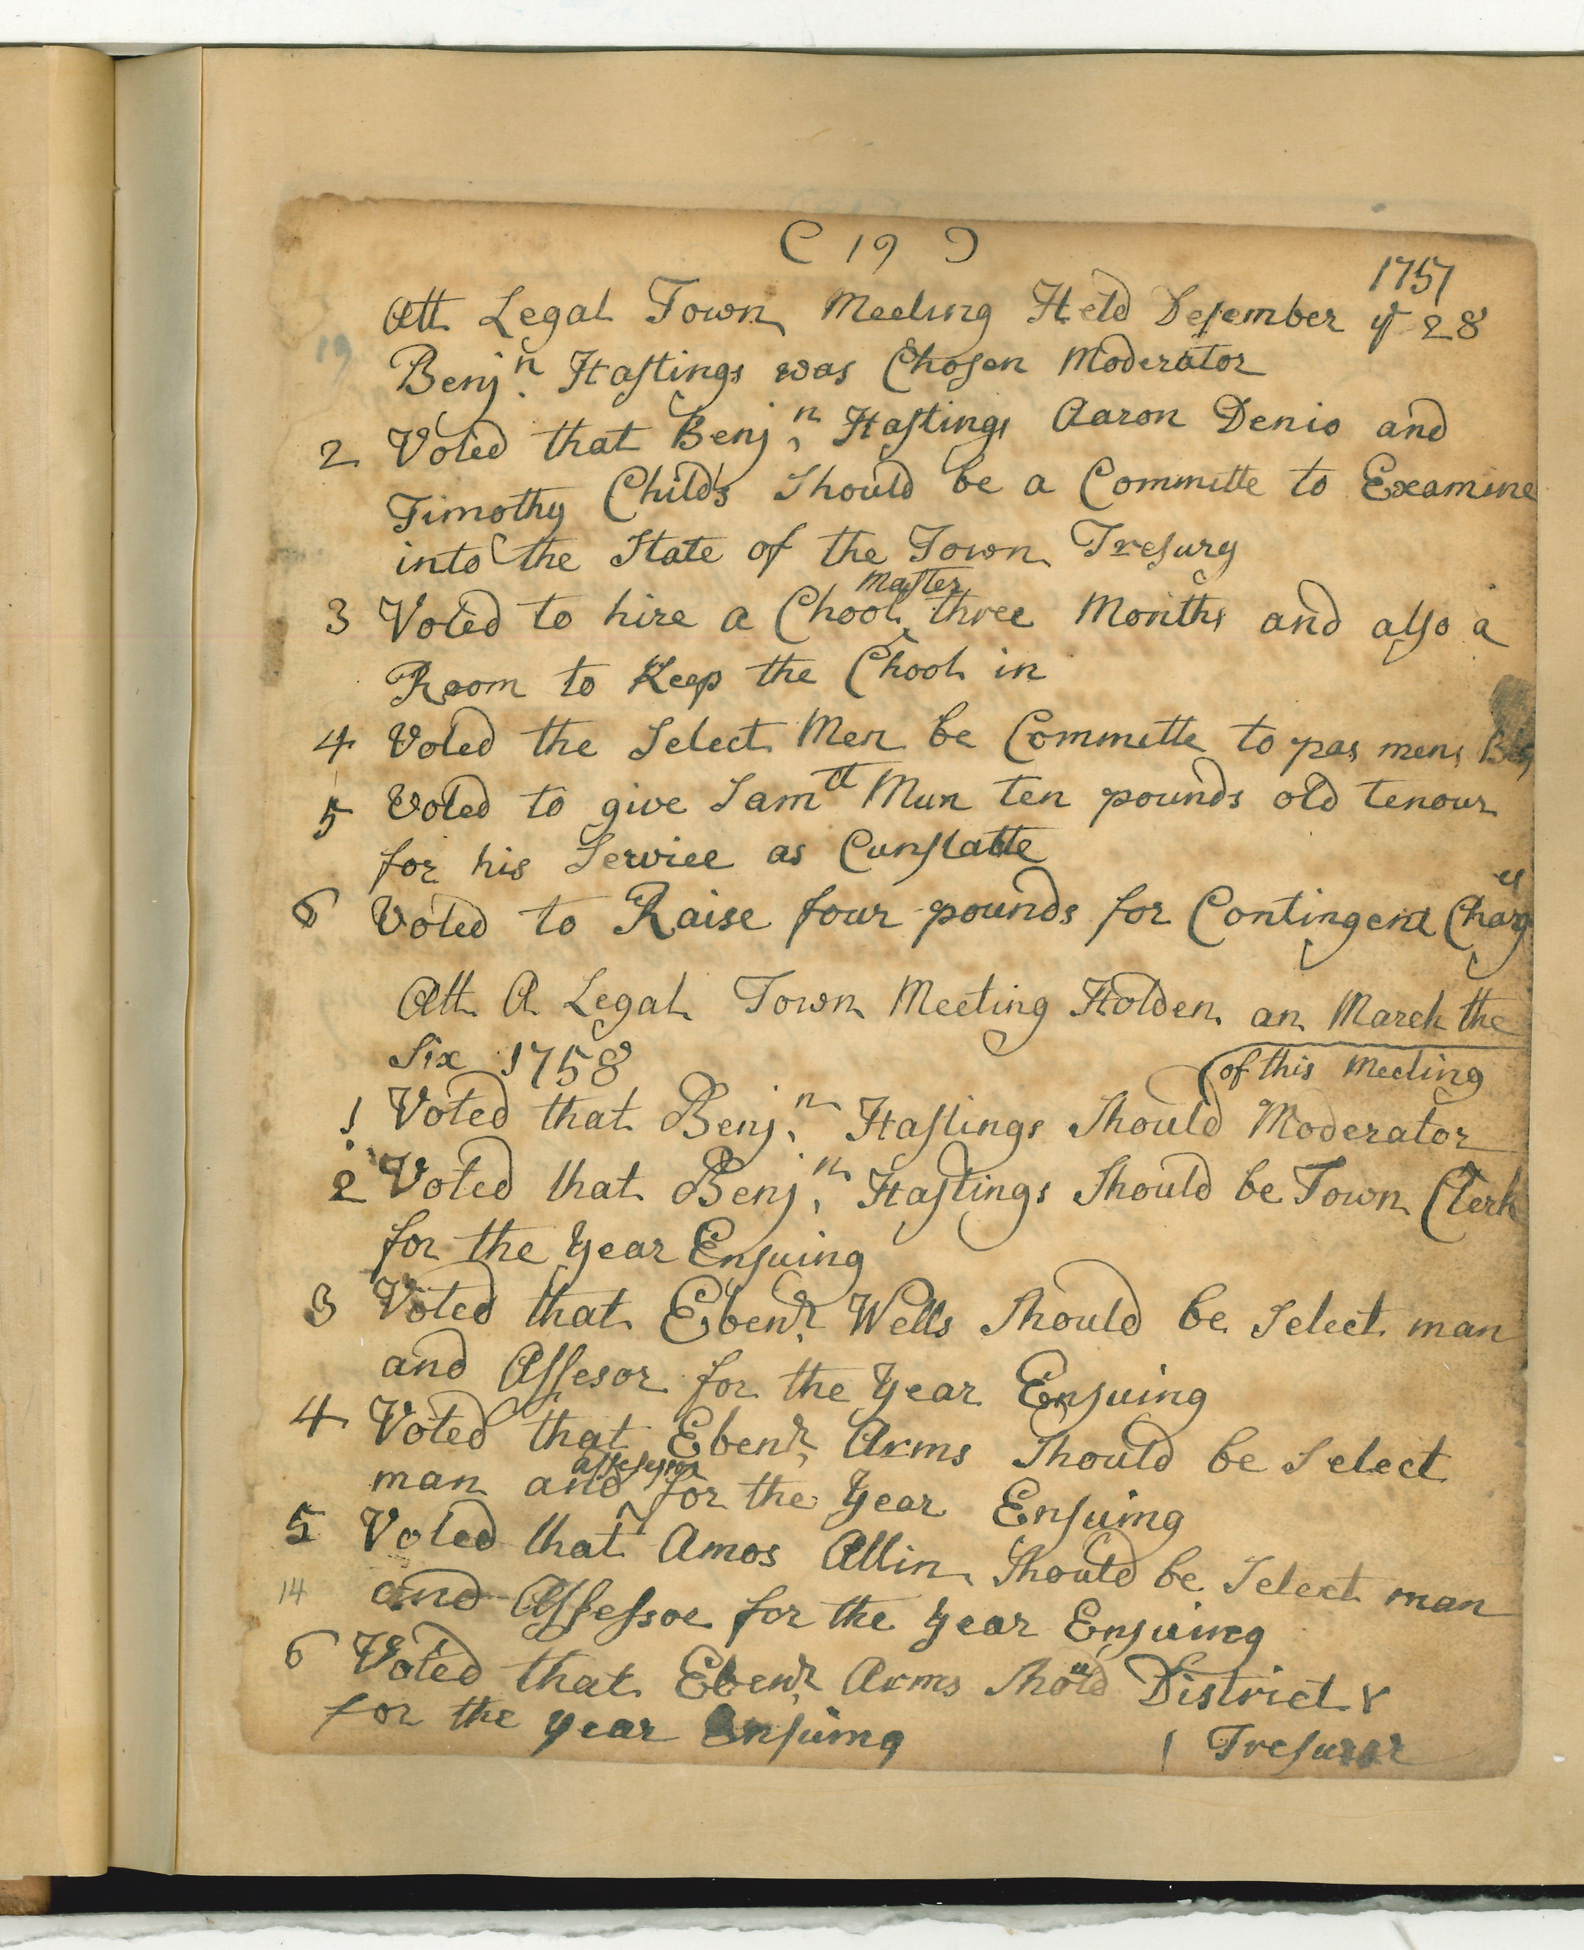 ( 19 )
1757
Att Legal Town Meeting Held Desember ye 28
19
Benjn. Hastings was Chosen Moderator
2 Voted that Benjn. Hastings Aaron Denio and
Timothy Childs Should be a Committe to Examine
into the State of the Town Tresury
master
3 Voted to hire a Chool ^ three Months and also a
Room to Keep the Chool in
4 Voted the Select Men be Committe to pas mens
5 Voted to give Samll Mun ten pounds old tenour
for his Service as Cunstable
6 Voted to Raise four pounds for Contingent Charges
Att A Legal Town Meeting Holden an March the
Six 1758
of this Meeting
1 Voted that Benjn. Hastings Should Moderator
2 Voted that Benjn. Hastings Should be Town Clerk
for the Year Ensuing
3 Voted that Ebenr. Wells Should be Select man
and Assesor for the Year Ensuing
4 Voted that Ebenr. Arms Should be Select
assessor
man and ^ for the Year Ensuing
5 Voted that Amos Allin Should be Select man
14 and Assessor for the Year Ensuing
6 Voted that Ebenr. Arms Should District
for the year Ensuing Tresurer